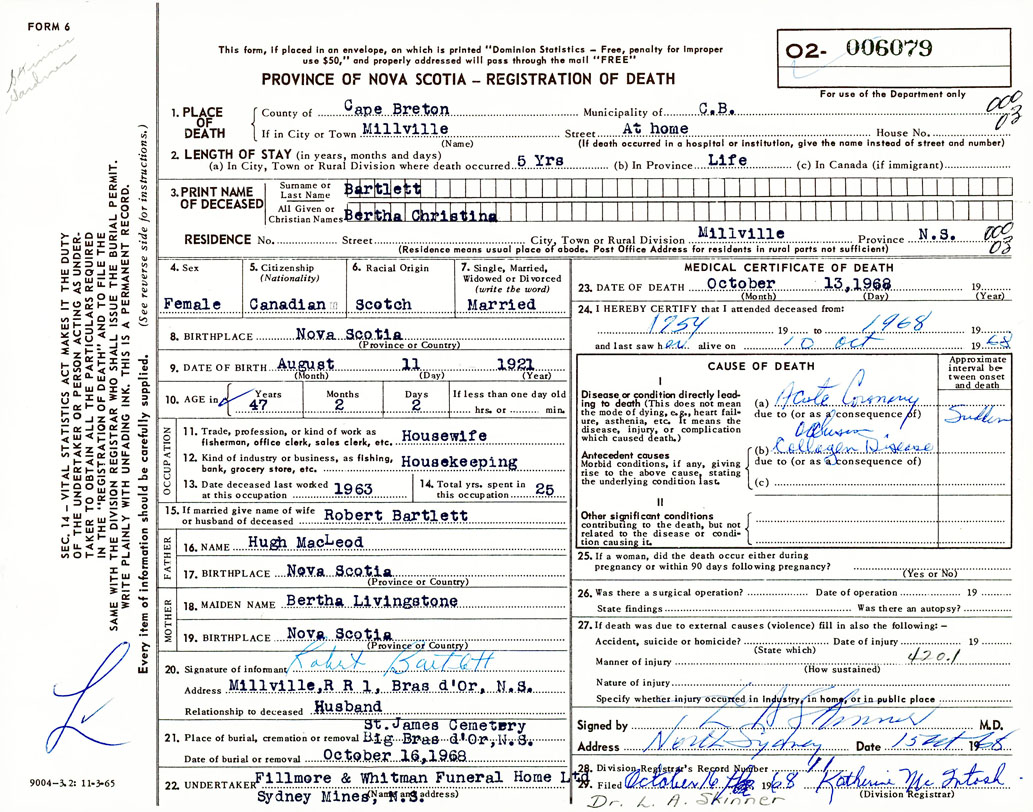 FORM 6
Skinner
Gardner
This form, if placed in an envelope, on which is printed "Dominion Statistics – Free, penalty for improper
use $50," and properly addressed will pass through the mail "FREE"
PROVINCE OF NOVA SCOTIA – REGISTRATION OF DEATH
O2- 006079
For use of the Department only
000
03
1. PLACE OF DEATH
County of Cape Breton Municipality of C.B.
If in City or Town Millville Street At home House No.
(Name) (If death occurred in a hospital or institution, give the name instead of street and number)
2. LENGTH OF STAY (in years, months and days)
(a) In City, Town or Rural Division where death occurred 5 Yrs (b) In Province Life (c) In Canada (if immigrant)
3. PRINT NAME OF DECEASED
Surname or Last Name Bartlett
All Given or Christian Names Bertha Christina
RESIDENCE No. Street City, Town or Rural Division Millville Province N.S.
(Residence means usual place of abode. Post Office Address for residents in rural parts not sufficient)
000
03
4. Sex
Female
5. Citizenship
(Nationality)
Canadian
6. Racial Origin
Scotch
7. Single, Married,
Widowed or Divorced
(write the word)
Married
8. BIRTHPLACE Nova Scotia
(Province or Country)
9. DATE OF BIRTH August 11 1921
(Month) (Day) (Year)
10. AGE in Years Months Days If less than one day old
47 2 2 hrs. or min.
OCCUPATION
11. Trade, profession, or kind of work as
fisherman, office clerk, sales clerk, etc. Housewife
12. Kind of industry or business, as fishing,
bank, grocery store, etc. Housekeeping
13. Date deceased last worked
at this occupation 1963
14. Total yrs. spent in
this occupation 25
15. If married give name of wife
or husband of deceased Robert Bartlett
FATHER
16. NAME Hugh MacLeod
17. BIRTHPLACE Nova Scotia
(Province or Country)
MOTHER
18. MAIDEN NAME Bertha Livingstone
19. BIRTHPLACE Nova Scotia
(Province or Country)
20. Signature of informant Robert Bartlett
Address Millville,R R 1, Bras d'Or, N.S.
Relationship to deceased Husband
St.James Cemetery
21. Place of burial, cremation or removal Big Bras d'Or,N.S.
Date of burial or removal October 16,1968
22. UNDERTAKER Fillmore & Whitman Funeral Home Ltd
(Name and address)
Sydney Mines, N.S.
MEDICAL CERTIFICATE OF DEATH
23. DATE OF DEATH October 13,1968 19
(Month) (Day) (Year)
24. I HEREBY CERTIFY that I attended deceased from:
1954 19 to 1968 19
and last saw her alive on 10 Oct 19 68
CAUSE OF DEATH
Approximate
interval be-
tween onset
and death
I
Disease or condition directly lead-
ing to death (This does not mean
the mode of dying, e.g., heart fail-
ure, asthenia, etc. It means the
disease, injury, or complication
which caused death.)
(a) Acute Coronary
due to (or as a consequence of)
Occlusion
Sudden
Antecedent causes
Morbid conditions, if any, giving
rise to the above cause, stating
the underlying condition last.
(b) Collagen Disease
due to (or as a consequence of)
(c)
II
Other significant conditions
contributing to the death, but not
related to the disease or condi-
tion causing it.
25. If a woman, did the death occur either during
pregnancy or within 90 days following pregnancy?
(Yes or No)
26. Was there a surgical operation? Date of operation 19
State findings Was there an autopsy?
27. If death was due to external causes (violence) fill in also the following: –
Accident, suicide or homicide? Date of injury 19
(State which)
420.1
Manner of injury
(How sustained)
Nature of injury
Specify whether injury occurred in industry, in home, or in public place
Signed by L A Skinner M.D.
Address North Sydney Date 15 Oct 1968
28. Division Registrar's Record Number
29. Filed October 16 1968 Katherine McIntosh
(Division Registrar)
Dr. L. A. Skinner
SEC. 14 – VITAL STATISTICS ACT MAKES IT THE DUTY
OF THE UNDERTAKER OR PERSON ACTING AS UNDER-
TAKER TO OBTAIN ALL THE PARTICULARS REQUIRED
IN THE "REGISTRATION OF DEATH" AND TO FILE THE
SAME WITH THE DIVISION REGISTRAR WHO SHALL ISSUE THE BURIAL PERMIT.
WRITE PLAINLY WITH UNFADING INK. THIS IS A PERMANENT RECORD.
Every item of information should be carefully supplied. (See reverse side for instructions.)
9004–3.2: 11-3-65